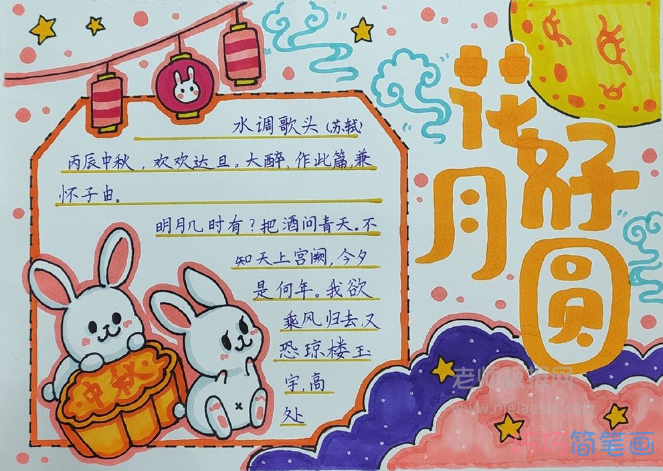 花好
月圆
水调歌头 (苏轼)
丙辰中秋，欢欢达旦。大醉，作此篇，兼
怀子由。
明月几时有？把酒问青天。不
知天上宫阙，今夕
是何年。我欲
乘风归去，又
恐琼楼玉
宇，高
处
中秋
简笔画